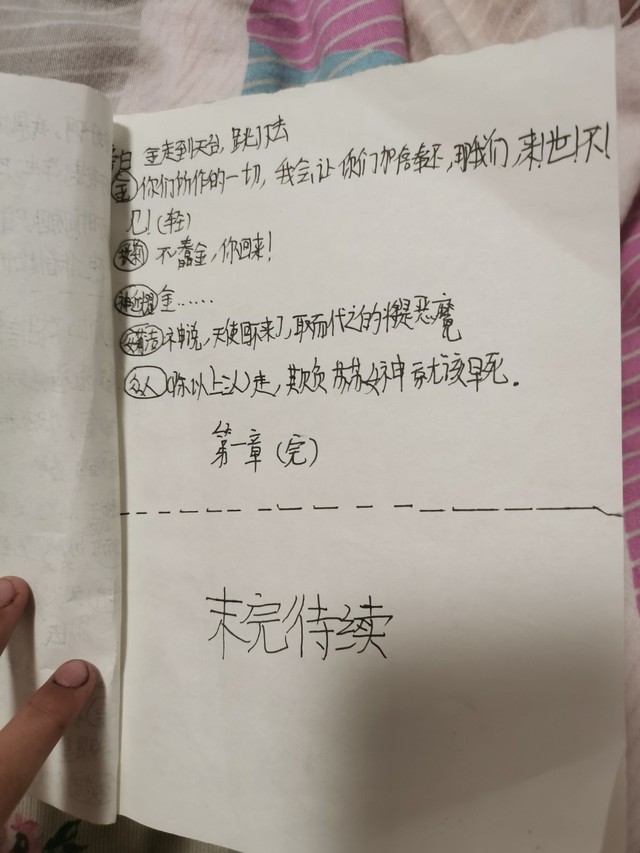 旁白 金走到天台，跳了下去
金 你们所作的一切，我会让你们加倍奉还，那我们，来！也！不！
见！(轻)
安莉 不，蠢金，你回来！
神近耀 金……
安莉洁 神说，天使回不来了，取而代之的将是恶魔
众人 (除以上三人)走，欺负苏苏女神就该早死．
第一章 (完)
未完待续